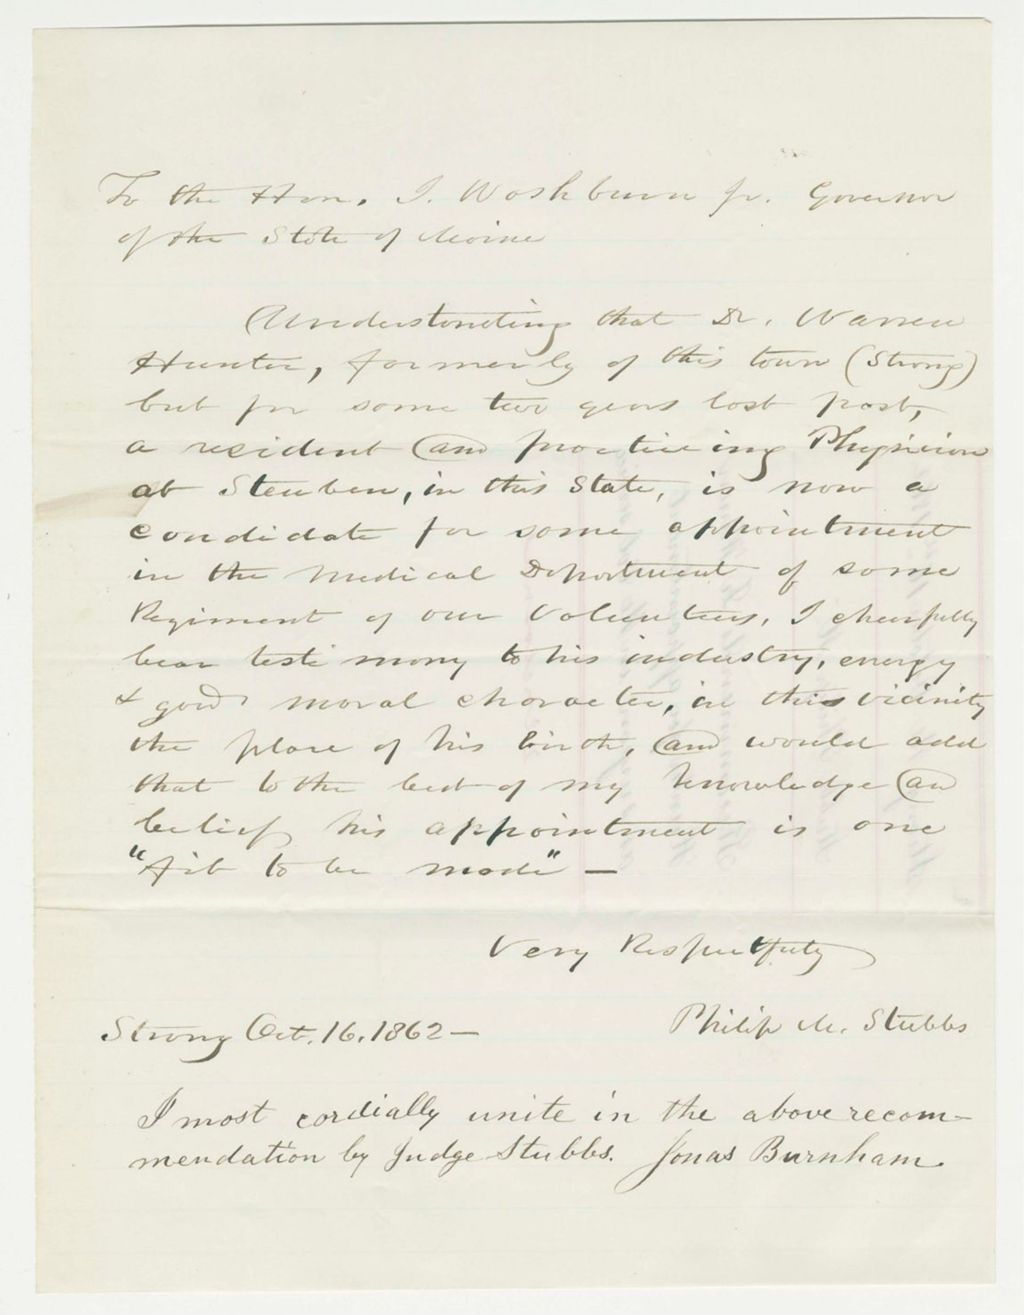 To the Hon. I. Washburn Jr. Governor
of the State of Maine
Understanding that Dr. Warren
Hunter, formerly of this town (Strong)
but for some two years last past,
a resident and practiceing Physician
at Steuben, in this State, is now a
candidate for some appointment
in the Medical Department of some
Regiment of our Volunteers, I cheerfully
bear testimony to his industry, energy
& good moral character, in this vicinity
the place of his birth, and would add
that to the best of my knowledge an
belief his appointment is one
"fit to be made" —
Very Respectfully
Philip M. Stubbs
Strong Oct. 16, 1862 —
I most cordially unite in the above recom-
mendation by Judge Stubbs. Jonas Burnham.